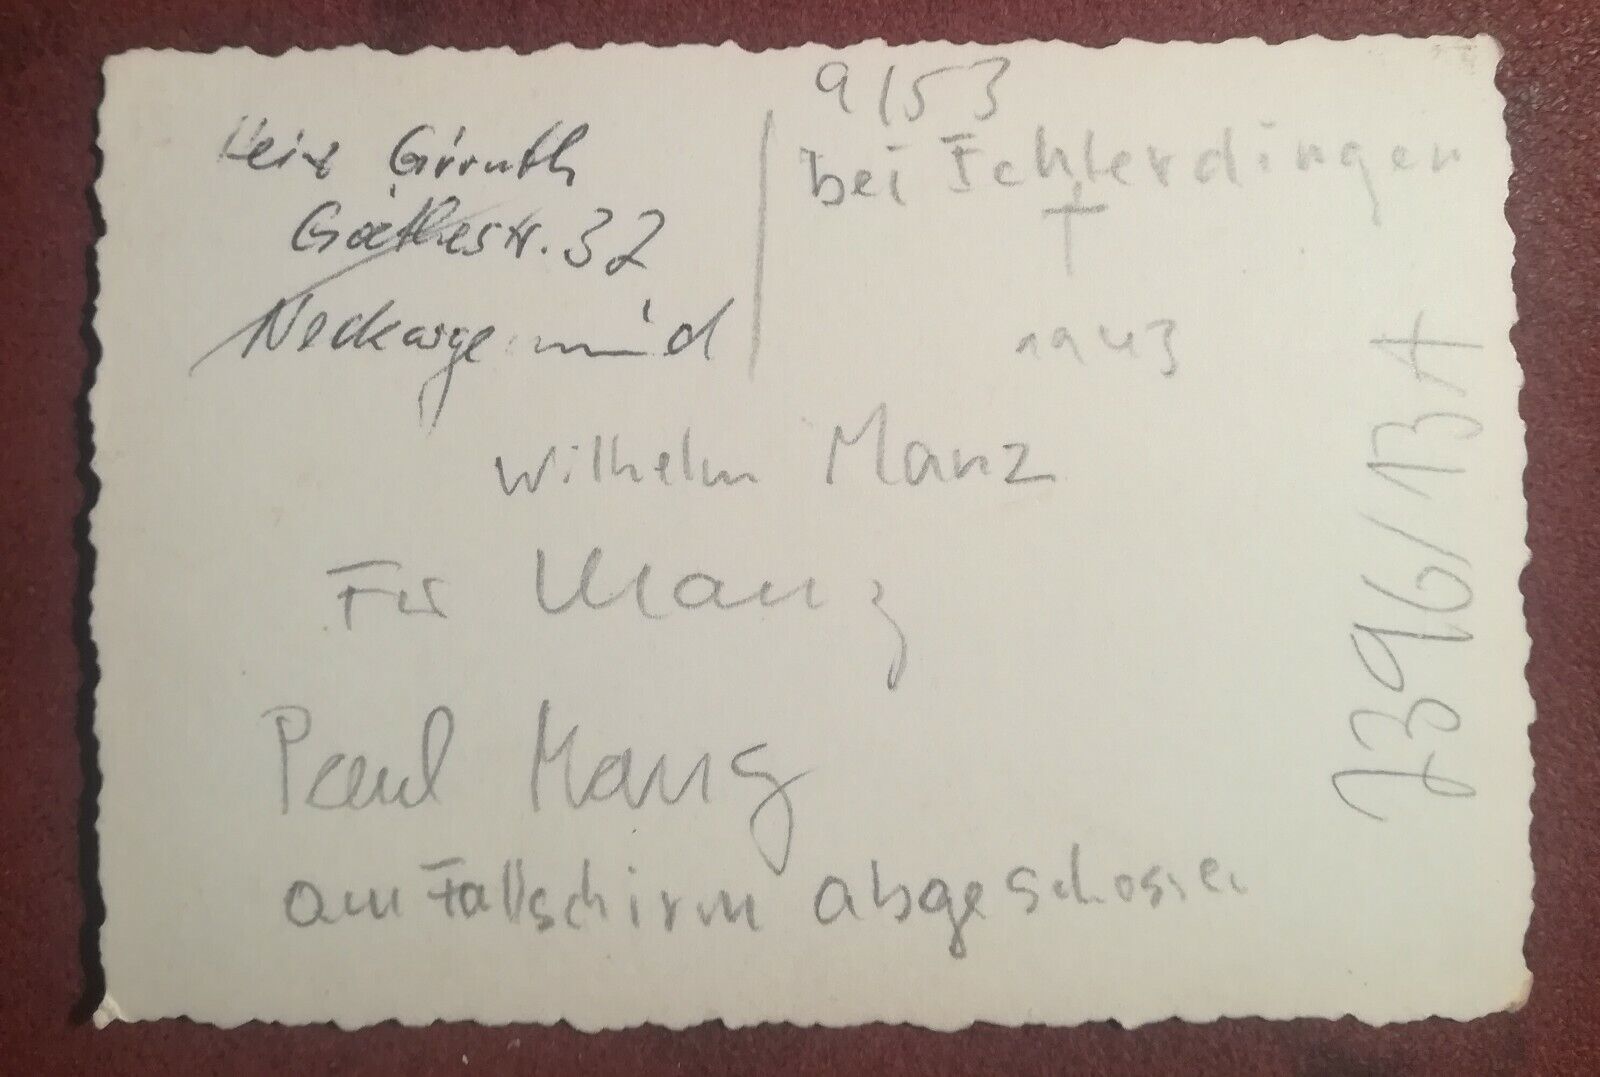 9/53
Girruth
Goethestr. 32
Neckargemünd
bei Echterdingen
†
1943
Wilhelm Manz
Manz
Paul Manz
am Fallschirm abgeschossen
7396/13A